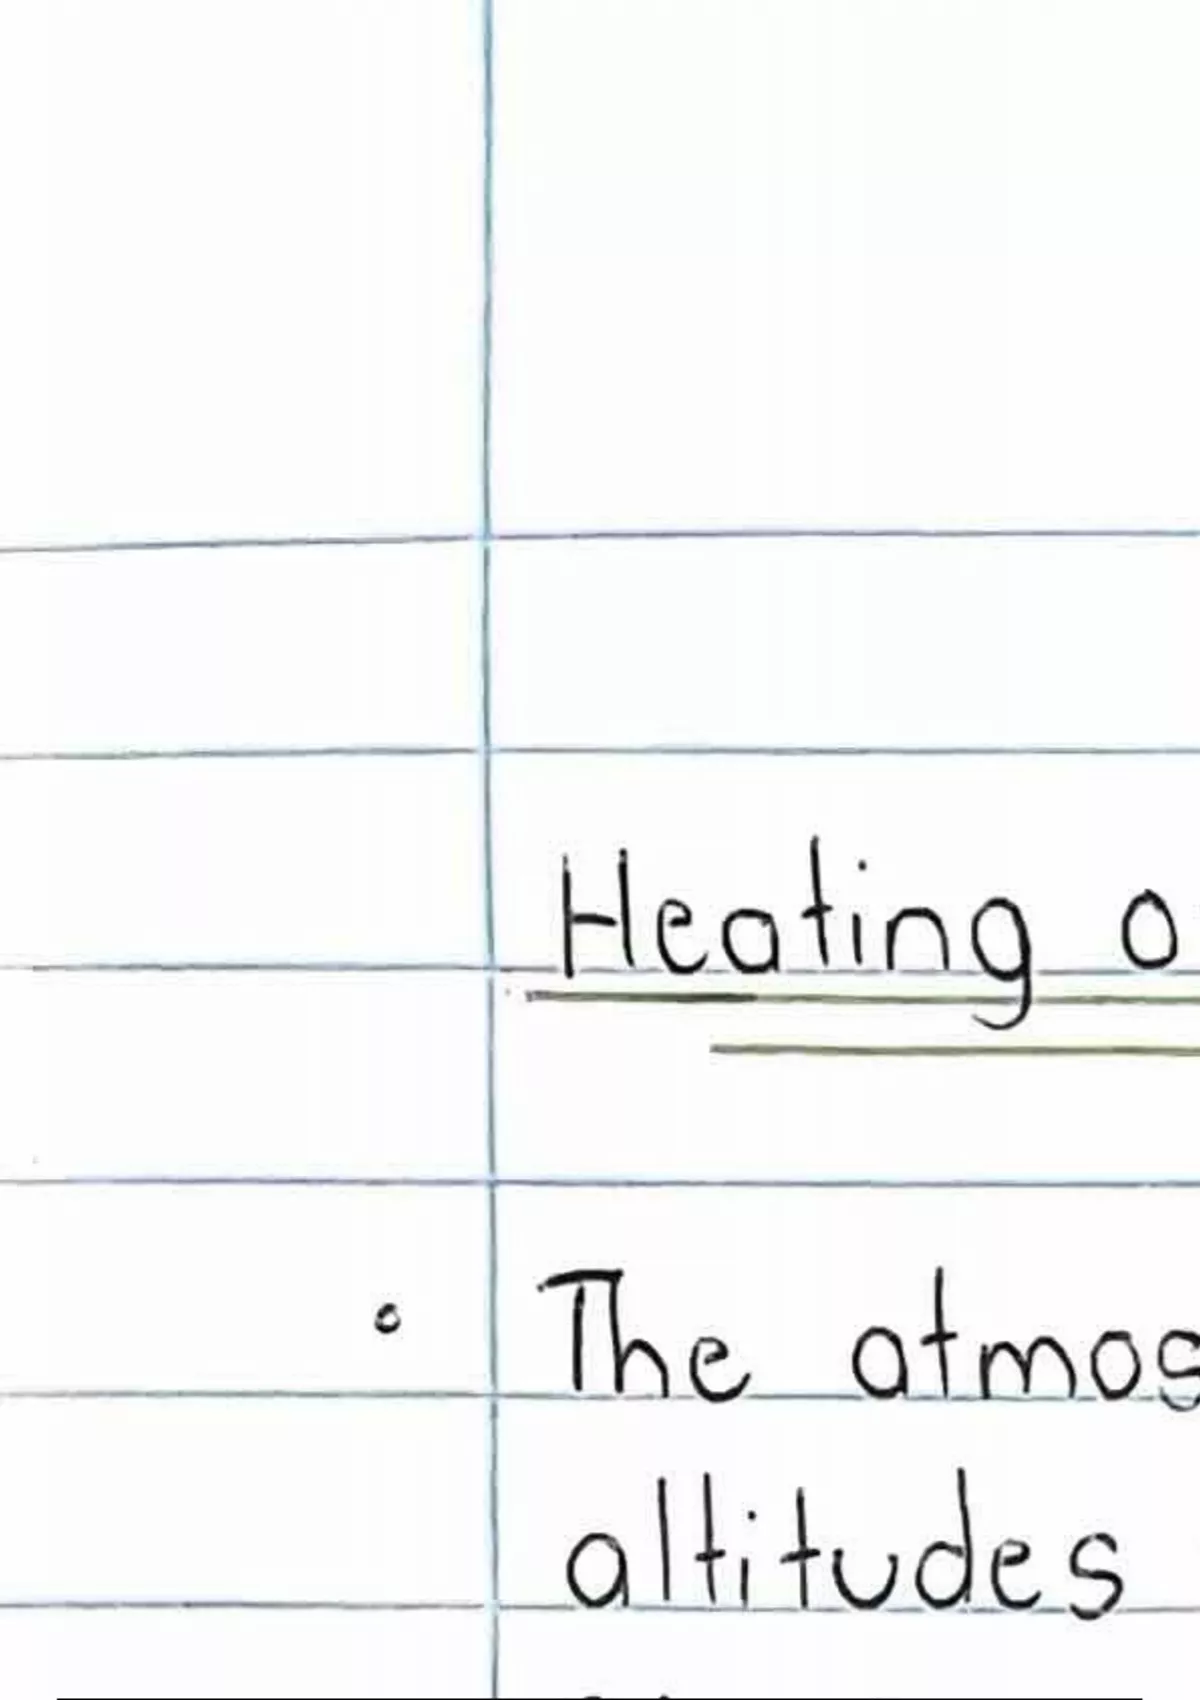 Heating o
• The atmos
altitudes